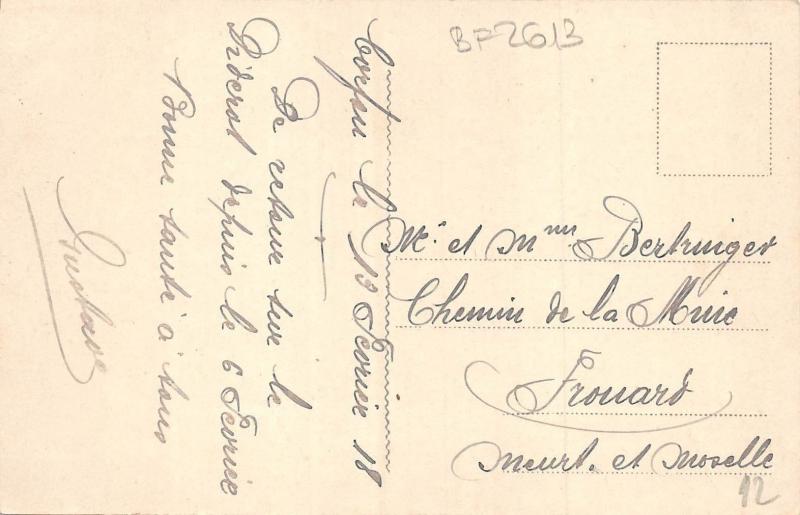 BF2613
Corfou le 13 Fevrier 18
De retour sur le
Diderot depuis le 6 Fevrier
Bonne santé à tous
Gustave
Mr et Mme Bertringer
Chemin de la Mine
Frouard
Meurt. et Moselle
12